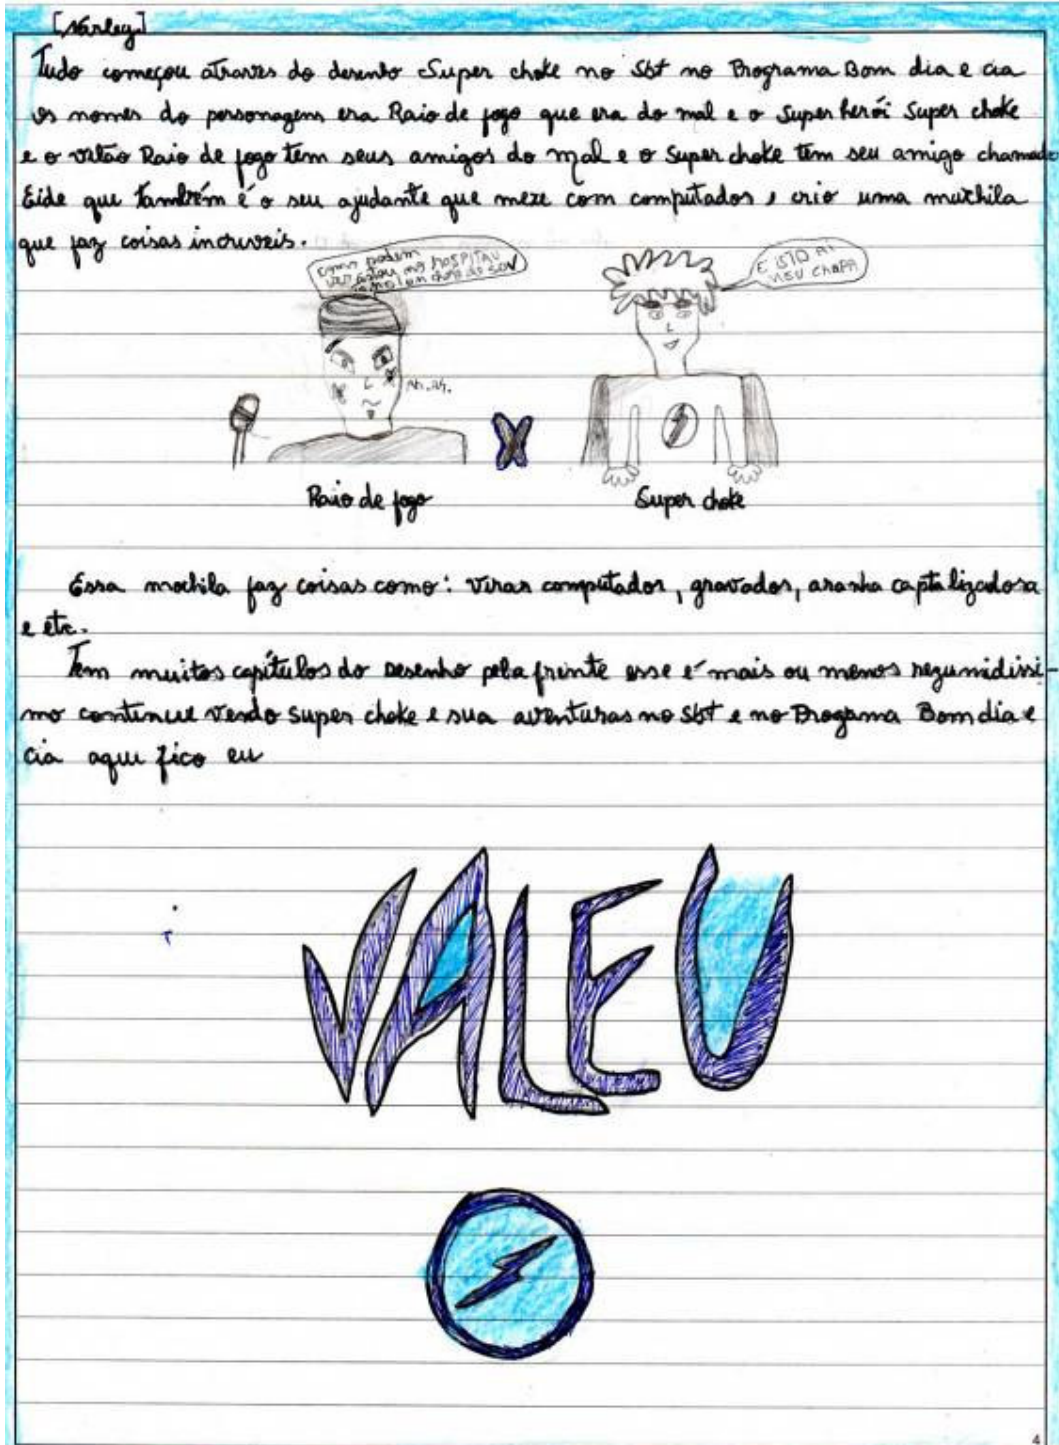 [Narley]
Tudo começou atraves do desenho Super choke no Sbt no Programa Bom dia e cia
os nomes do personagens era Raio de fogo que era do mal e o Super herói Super choke
e o vilão Raio de fogo tem seus amigos do mal e o Super choke tem seu amigo chamado
Eide que também é o seu ajudante que mexe com computados e crio uma muchila
que faz coisas incriveis.
como podem
ver estou no HOSPITAU
E ISTO AI
MEU CHAPA
X
Raio de fogo
Super choke
Essa mochila faz coisas como: virar computador, gravador, aranha captalizadora
e etc.
Tem muitos capítulos do desenho pela frente esse é mais ou menos rezumidissi-
mo continue vendo Super choke e sua aventuras no Sbt e no Progama Bom dia e
cia aqui fico eu
VALEU
4